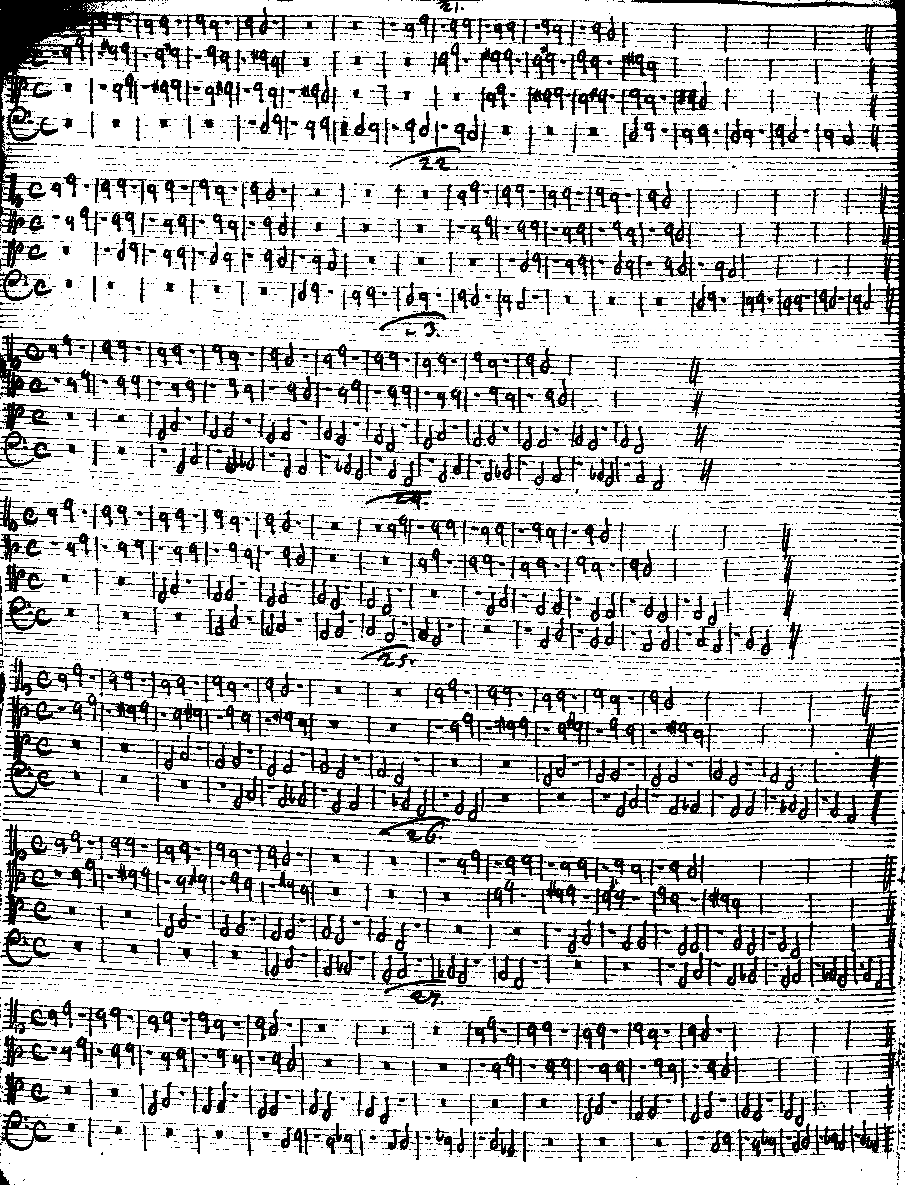 21.
22.
24.
25.
26.
27.